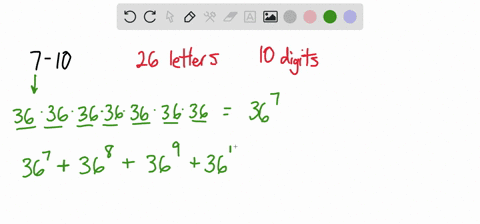 7-10 26 letters 10 digits
36 · 36 · 36 · 36 · 36 · 36 · 36 = 36^7
36^7 + 36^8 + 36^9 + 36^1